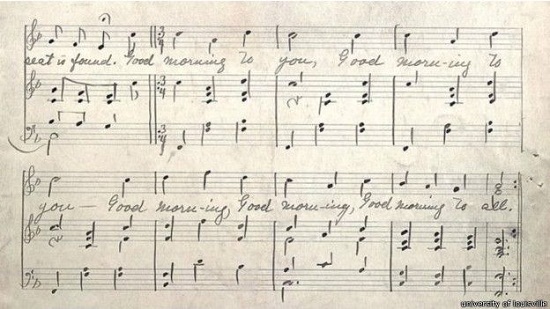 seat is found. Good morning to you, Good morn-ing to
you — Good morn-ing, Good morn-ing, Good morning to all.
university of louisville